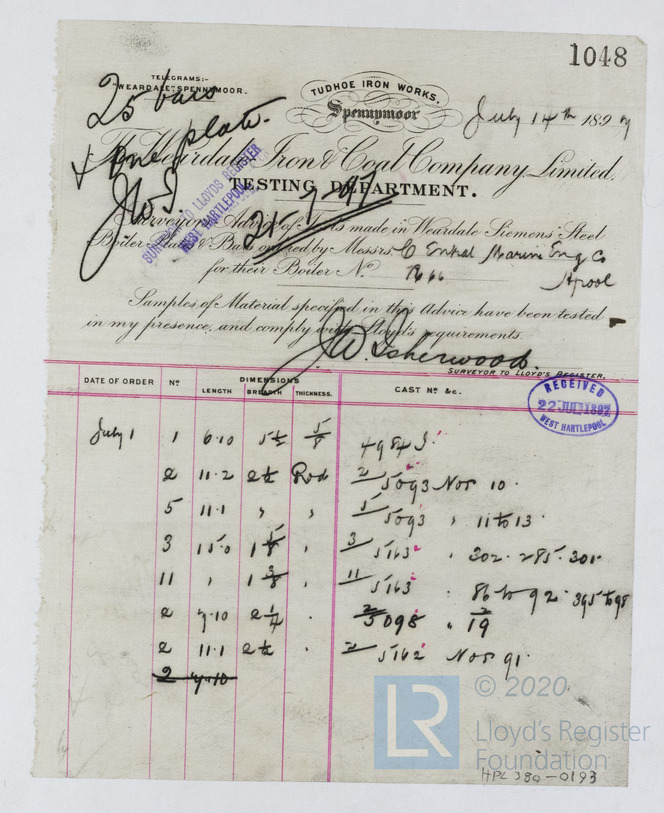 1048
TELEGRAMS:-
"WEARDALE" SPENNYMOOR.
25 bars
& one plate.
J.W.I.
21-7-97
TUDHOE IRON WORKS,
Spennymoor
July 14th 1897
The Weardale Iron & Coal Company, Limited.
TESTING DEPARTMENT.
SURVEYOR TO LLOYD'S REGISTER
WEST HARTLEPOOL
Surveyors Advice of Tests made in Weardale Siemens Steel
Boiler Plates & Bars ordered by Messrs. Central Marine Eng Co
for their Boiler No. Hpool
Samples of Material specified in this Advice have been tested
in my presence, and comply with Lloyd's requirements.
J.W. Isherwood.
SURVEYOR TO LLOYD'S REGISTER.
RECEIVED
22 JUL 1897
WEST HARTLEPOOL
DATE OF ORDER No. DIMENSIONS CAST No. &c.
LENGTH BREADTH THICKNESS.
July 1 1 6.10 5½ 5/8 4984 I.
2 11.2 2½ Rod 2/5093 Nos 10.
5 11.1 " " 5/5093 " 11 to 13.
3 15.0 1 5/8 " 3/5163 " 302. 285. 301.
11 " 1 3/8 " 11/5163 " 86 to 92. 395 to 98
2 7.10 2¼ " 5098 " 19
2 11.1 2½ " 2/5162 Nos 91.
2 7.10
LR
© 2020
Lloyd's Register
Foundation
HPL380-0193